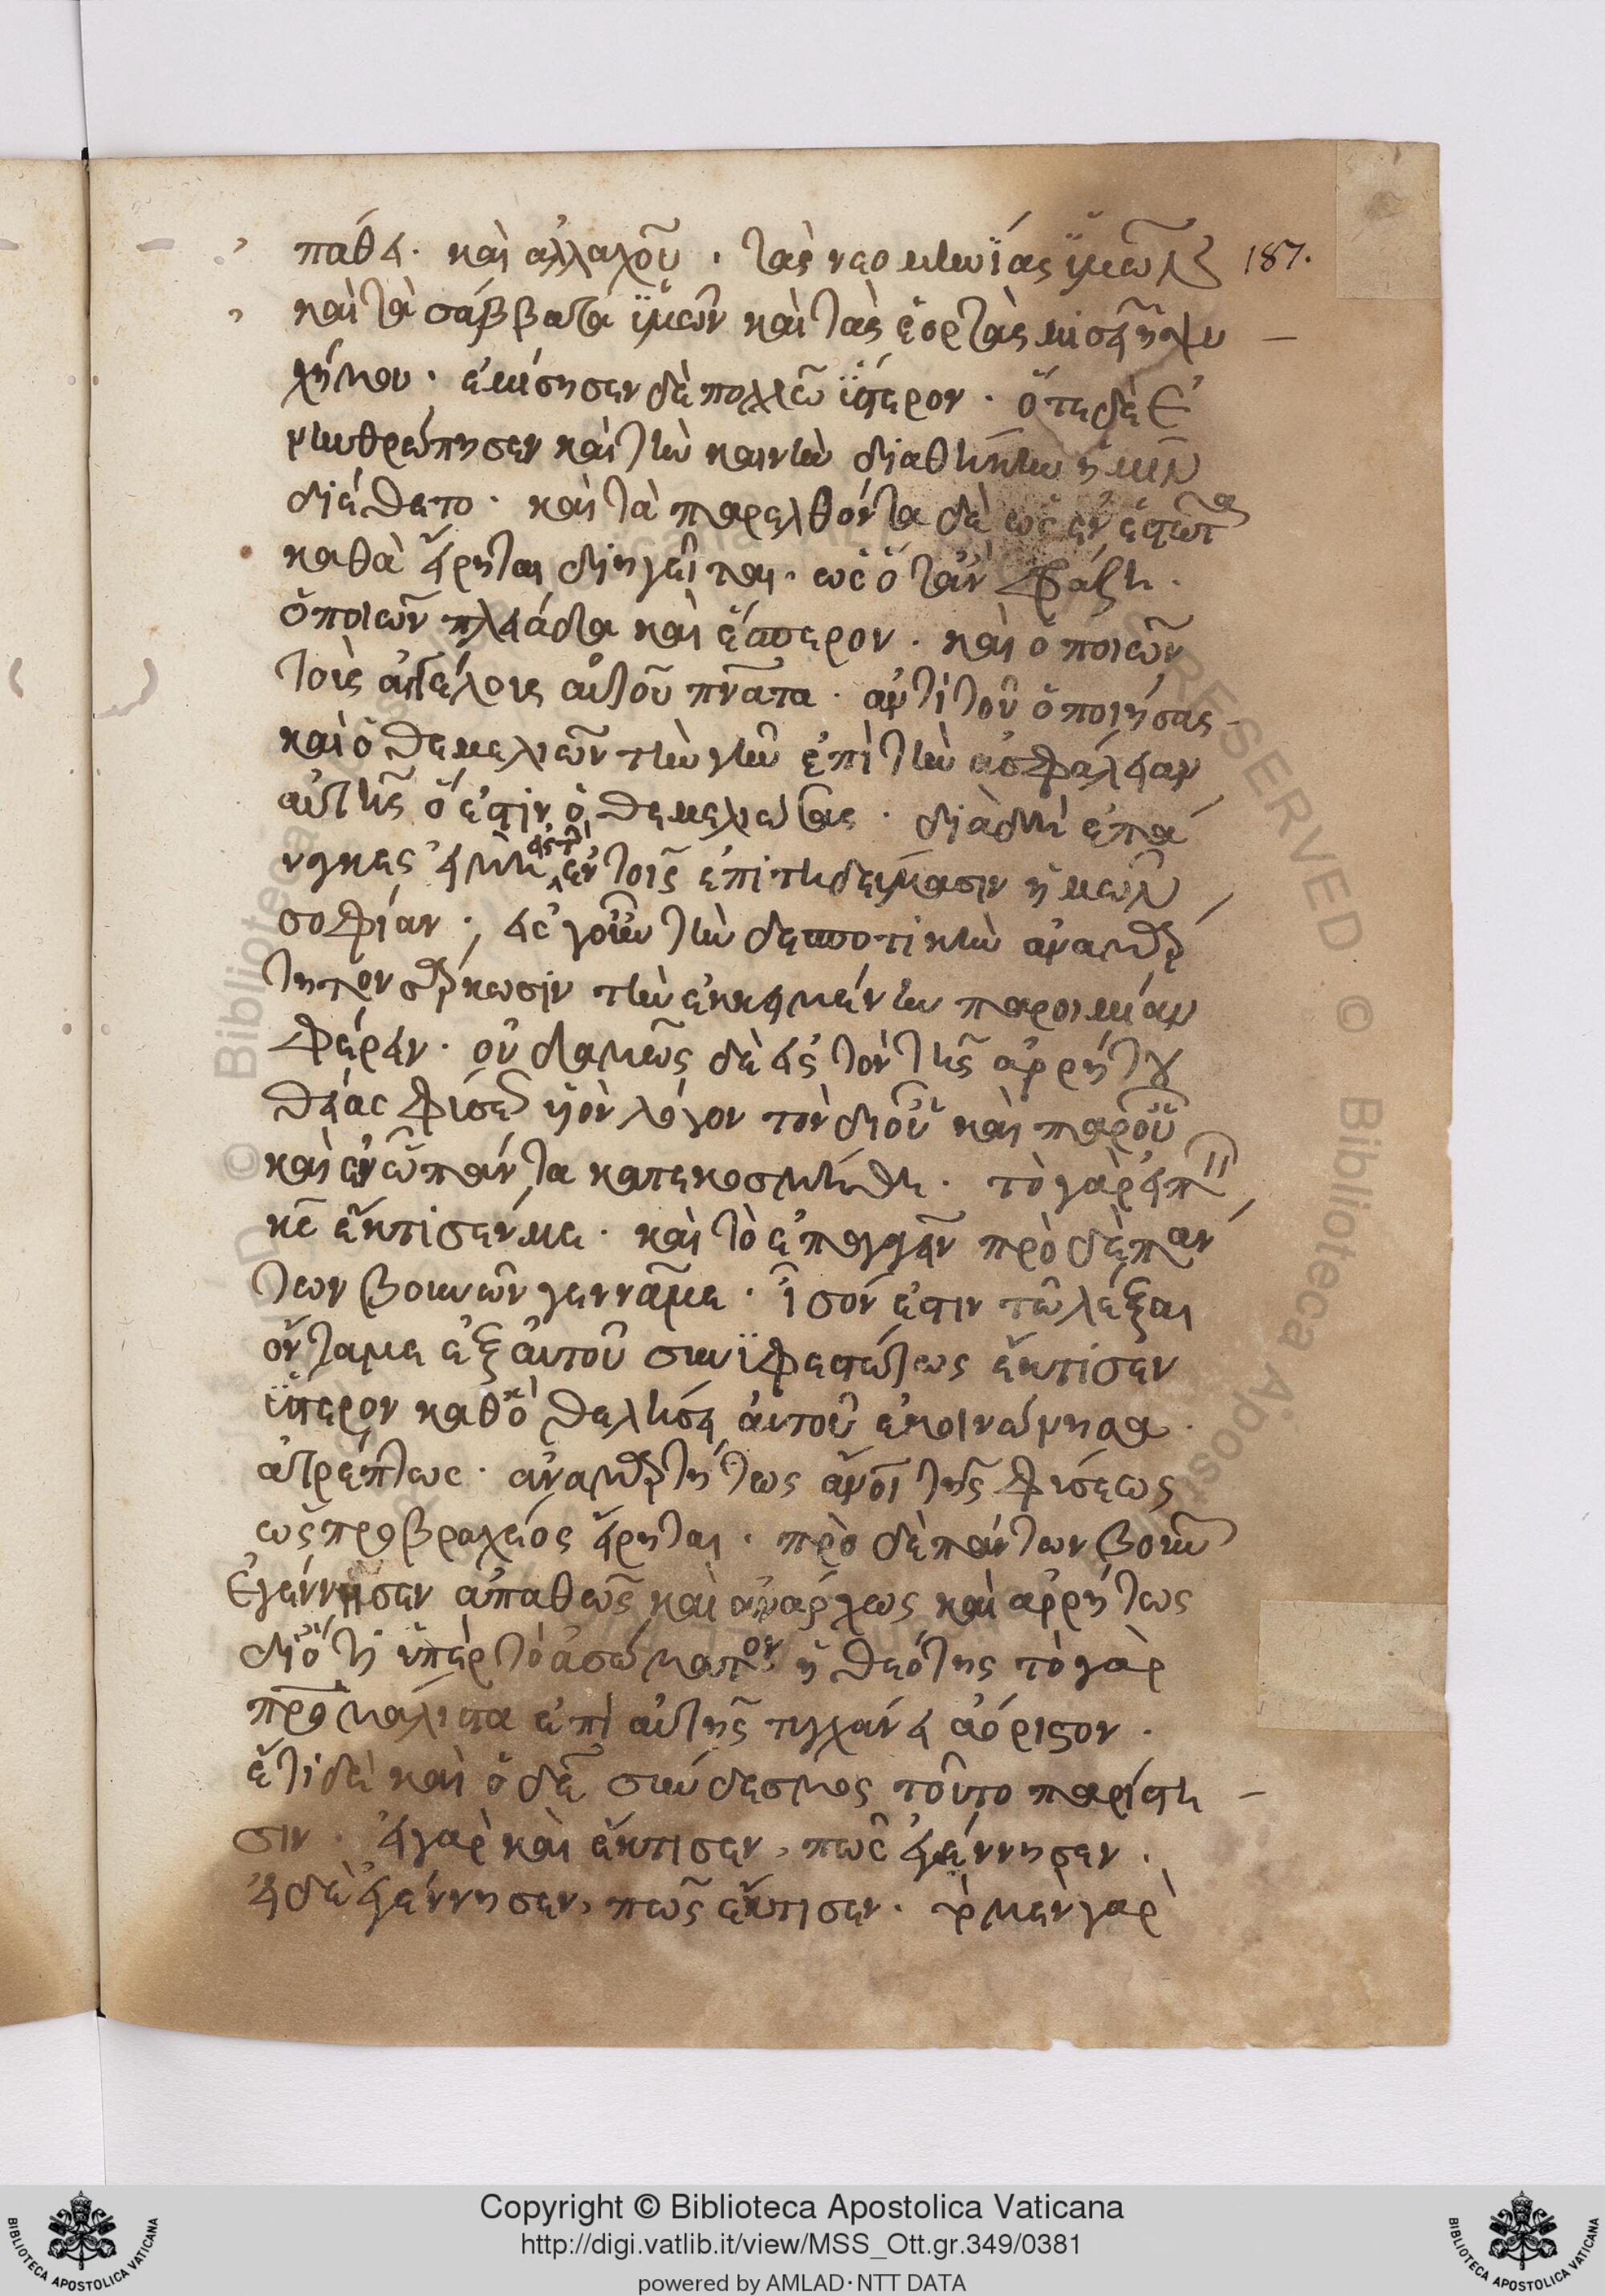 πάθει· καὶ ἀλλαχοῦ· τὰς νεομηνίας ὑμῶν 187.
καὶ τὰ σάββατα ὑμῶν καὶ τὰς ἑορτὰς μισεῖ ἡ ψυ
χή μου· ἐμίσησεν δὲ πολλῷ ὕστερον· ὅτε δὲ ἐ
νηνθρώπησεν καὶ τὴν καινὴν διαθήκην ἡμῖν
διέθετο· καὶ τὰ παρελθόντα δὲ ὡς ἐνεστῶτα
καθὰ εἴρηται διηγεῖται· ὡς ὅταν φράζῃ·
ὁ ποιῶν πλειάδα καὶ ἕσπερον· καὶ ὁ ποιῶν
τοὺς ἀγγέλους αὐτοῦ πνατα· ἀντὶ τοῦ ὁ ποιήσας
καὶ ὁ θεμελιῶν τὴν γῆν ἐπὶ τὴν ἀσφάλειαν
αὐτῆς ὅ ἐστιν ὁ θεμελιώσας· διὰ δὴ ἐπά
ναγκες ἐν τοῖς ἐπιτηδεύμασιν ἡμῶν
σοφίαν· εἰς γοῦν τὴν δεσποτικὴν ἀναμάρ
τητον σάρκωσιν τὴν ἐκκειμένην παροιμίαν
φέρειν· οὐδαμῶς δὲ εἰς τὸν τῆς ἀρρήτου
θείας φύσεως λόγον τὸν δι οὗ καὶ παρ οὗ
καὶ ἐν ᾧ πάντα κατεκοσμήθη· τὸ γὰρ εἰπεῖν
κς ἔκτισέν με· καὶ τὸ ἐπαγαγεῖν πρὸ δὲ πάν
των βουνῶν γεννᾷ με· ἴσόν ἐστιν τῷ λέξαι
ὄντα με ἐξ αὐτοῦ συνυφεστώτως ἔκτισεν
ὕστερον καθ ὃ θελήσει αὐτοῦ ἐκοινώνησα·
ἀτρέπτως· ἀναμαρτήτως τῆς φύσεως
ὡς πρὸ βραχέος εἴρηται· πρὸ δὲ πάντων βουνῶν
ἐγέννησεν ἀπαθῶς καὶ ἀνάρχως καὶ ἀρρήτως
διότι ὑπὲρ τὸ ἀσώματον ἡ θεότης τὸ γὰρ
μάλιστα ἐπὶ αὐτῆς τυγχάνει ἀόριστον·
ἔτι δὲ καὶ ὁ δὲ σύνδεσμος τοῦτο παρίστη
σιν· εἰ γὰρ καὶ ἔκτισεν, πῶς ἐγέννησεν·
εἰ δὲ ἐγέννησεν, πῶς ἔκτισεν· τὸ μὲν γὰρ
Copyright © Biblioteca Apostolica Vaticana
http://digi.vatlib.it/view/MSS_Ott.gr.349/0381
powered by AMLAD·NTT DATA
BIBLIOTECA APOSTOLICA VATICANA
BIBLIOTECA APOSTOLICA VATICANA